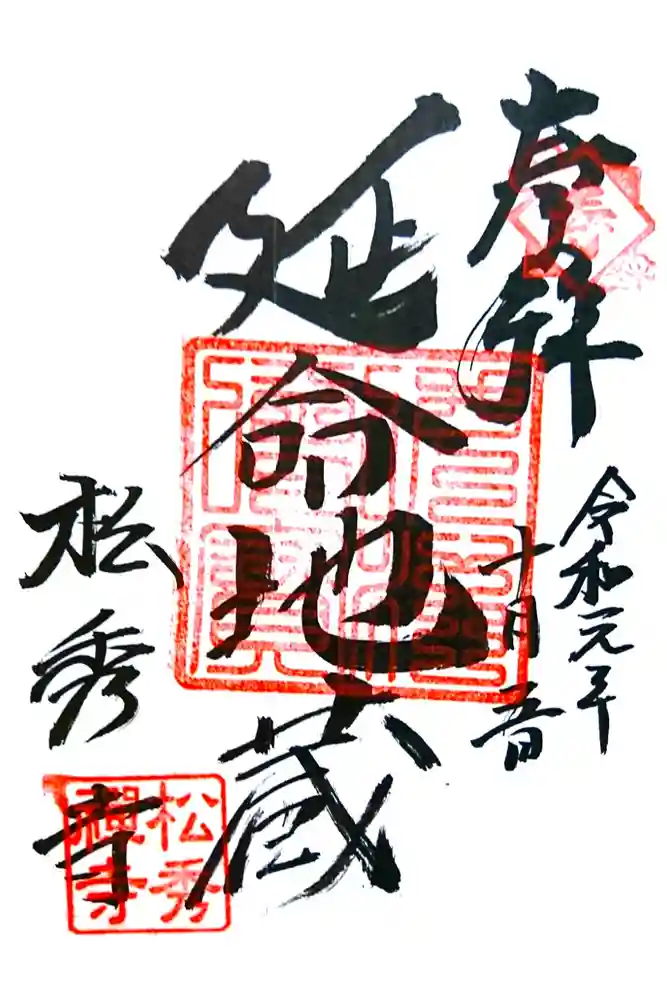 奉拝
令和元年
十月五日
延命地蔵
松秀寺
松秀
禅寺